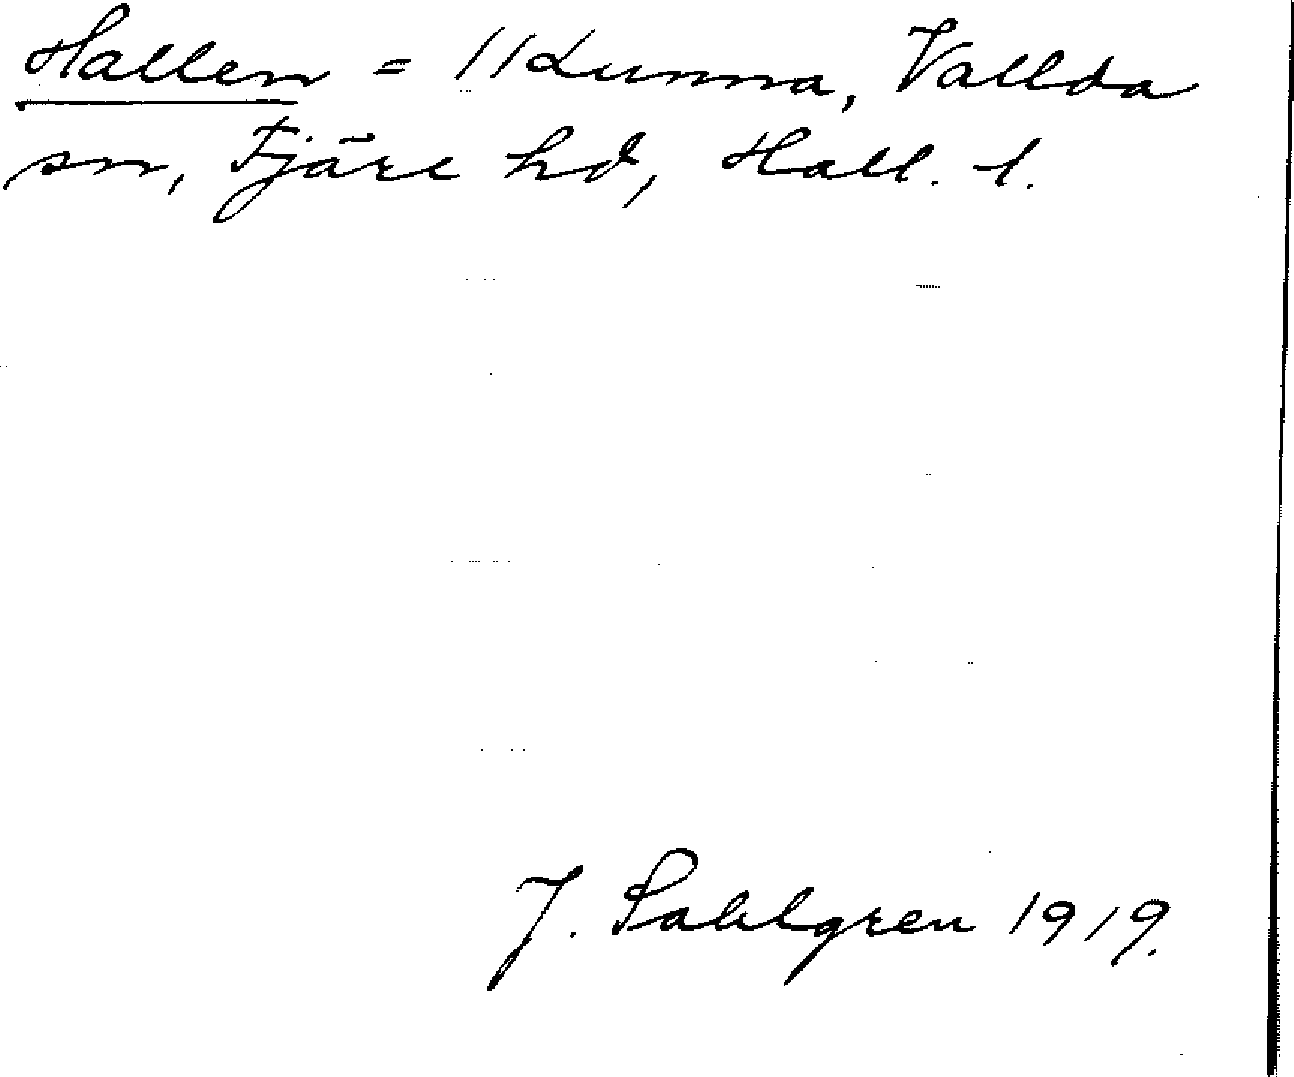 Hallen = 11 Lunna, Vallda
sn, Fjäre hd, Hall. l.
J. Sahlgren 1919.